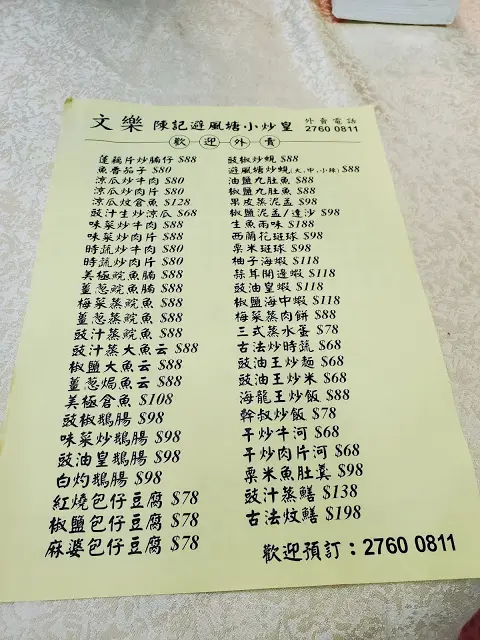 文樂 陳記避風塘小炒皇
外賣電話
2760 0811
歡迎外賣
蓮藕片炒腩仔 $88
魚香茄子 $80
涼瓜炒牛肉 $80
涼瓜炒肉片 $80
涼瓜炆倉魚 $128
豉汁生炒涼瓜 $68
味菜炒牛肉 $88
味菜炒肉片 $88
時蔬炒牛肉 $80
時蔬炒肉片 $80
美極鯇魚腩 $88
薑葱鯇魚腩 $88
梅菜蒸鯇魚 $88
薑葱蒸鯇魚 $88
豉汁蒸鯇魚 $88
豉汁蒸大魚云 $88
椒鹽大魚云 $88
薑葱焗魚云 $88
美極倉魚 $108
豉椒鵝腸 $98
味菜炒鵝腸 $98
豉油皇鵝腸 $98
白灼鵝腸 $98
紅燒包仔豆腐 $78
椒鹽包仔豆腐 $78
麻婆包仔豆腐 $78
豉椒炒蜆 $88
避風塘炒蜆(大,中,小辣) $88
油鹽九肚魚 $88
椒鹽九肚魚 $88
果皮蒸泥孟 $98
椒鹽泥孟/達沙 $98
生魚兩味 $188
西蘭花斑球 $98
粟米斑球 $98
柚子海蝦 $118
蒜茸開邊蝦 $118
豉油皇蝦 $118
椒鹽海中蝦 $118
梅菜蒸肉餅 $88
三式蒸水蛋 $78
古法炒時蔬 $68
豉油王炒麵 $68
豉油王炒米 $68
海龍王炒飯 $88
幹叔炒飯 $78
干炒牛河 $68
干炒肉片河 $68
粟米魚肚羹 $98
豉汁蒸鱔 $138
古法炆鱔 $198
歡迎預訂：2760 0811